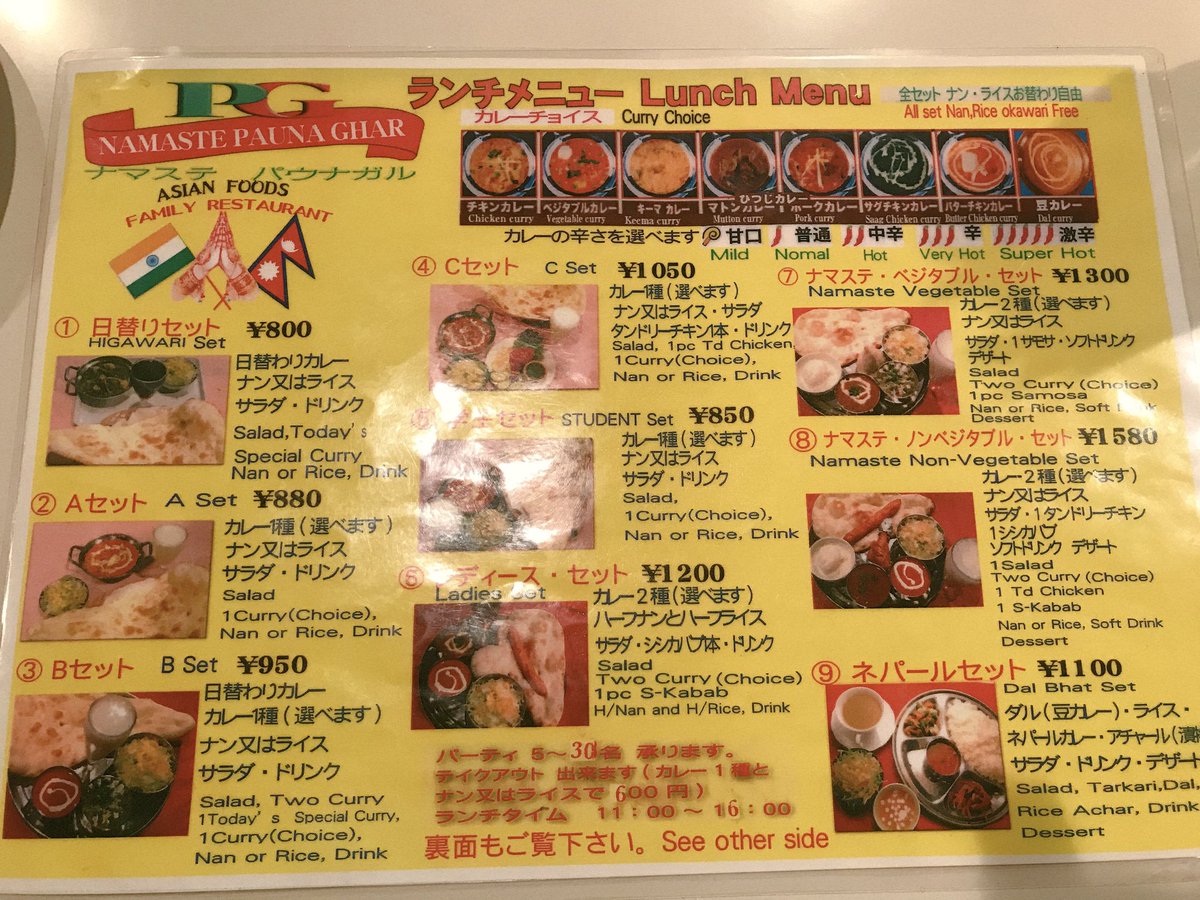 PG
NAMASTE PAUNA GHAR
ナマステ パウナガル
ASIAN FOODS
FAMILY RESTAURANT
ランチメニュー Lunch Menu
全セット ナン・ライスお替わり自由
All set Nan,Rice okawari Free
カレーチョイス Curry Choice
チキンカレー
Chicken curry
ベジタブルカレー
Vegetable curry
キーマ カレー
Keema curry
ひつじカレー
マトンカレー
Mutton curry
ポークカレー
Pork curry
サグチキンカレー
Saag Chicken curry
バターチキンカレー
Butter Chicken curry
豆カレー
Dal curry
カレーの辛さを選べます 甘口 普通 中辛 辛 激辛
Mild Nomal Hot Very Hot Super Hot
① 日替りセット ¥800
HIGAWARI Set
日替わりカレー
ナン又はライス
サラダ・ドリンク
Salad,Today's
Special Curry
Nan or Rice, Drink
② Aセット A Set ¥880
カレー1種(選べます)
ナン又はライス
サラダ・ドリンク
Salad
1Curry(Choice),
Nan or Rice, Drink
③ Bセット B Set ¥950
日替わりカレー
カレー1種(選べます)
ナン又はライス
サラダ・ドリンク
Salad, Two Curry
1Today's Special Curry,
1Curry(Choice),
Nan or Rice, Drink
④ Cセット C Set ¥1050
カレー1種(選べます)
ナン又はライス・サラダ
タンドリーチキン1本・ドリンク
Salad, 1pc Td Chicken
1Curry(Choice),
Nan or Rice, Drink
セット STUDENT Set ¥850
カレー1種(選べます)
ナン又はライス
サラダ・ドリンク
Salad,
1Curry(Choice),
Nan or Rice, Drink
⑥ ディース・セット ¥1200
Ladies Set
カレー2種(選べます)
ハーフナンとハーフライス
サラダ・シシカバブ1本・ドリンク
Salad
Two Curry (Choice)
1pc S-Kabab
H/Nan and H/Rice, Drink
⑦ ナマステ・ベジタブル・セット ¥1300
Namaste Vegetable Set
カレー2種(選べます)
ナン又はライス
サラダ・1サモサ・ソフトドリンク
デザート
Salad
Two Curry (Choice)
1pc Samosa
Nan or Rice, Soft Drink
Dessert
⑧ ナマステ・ノンベジタブル・セット ¥1580
Namaste Non-Vegetable Set
カレー2種(選べます)
ナン又はライス
サラダ・1タンドリーチキン
1シシカバブ
ソフトドリンク デザート
1Salad
Two Curry (Choice)
1 Td Chicken
1 S-Kabab
Nan or Rice, Soft Drink
Dessert
⑨ ネパールセット ¥1100
Dal Bhat Set
ダル(豆カレー)・ライス・
ネパールカレー・アチャール(漬
サラダ・ドリンク・デザート
Salad, Tarkari,Dal,
Rice Achar, Drink
Dessert
パーティ 5～30名 承ります。
テイクアウト 出来ます(カレー1種と
ナン又はライスで600円)
ランチタイム 11:00～16:00
裏面もご覧下さい。See other side